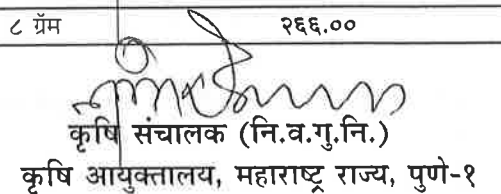 ८ ग्रॅम २६६.००
कृषि संचालक (नि.व.गु.नि.)
कृषि आयुक्तालय, महाराष्ट्र राज्य, पुणे-१